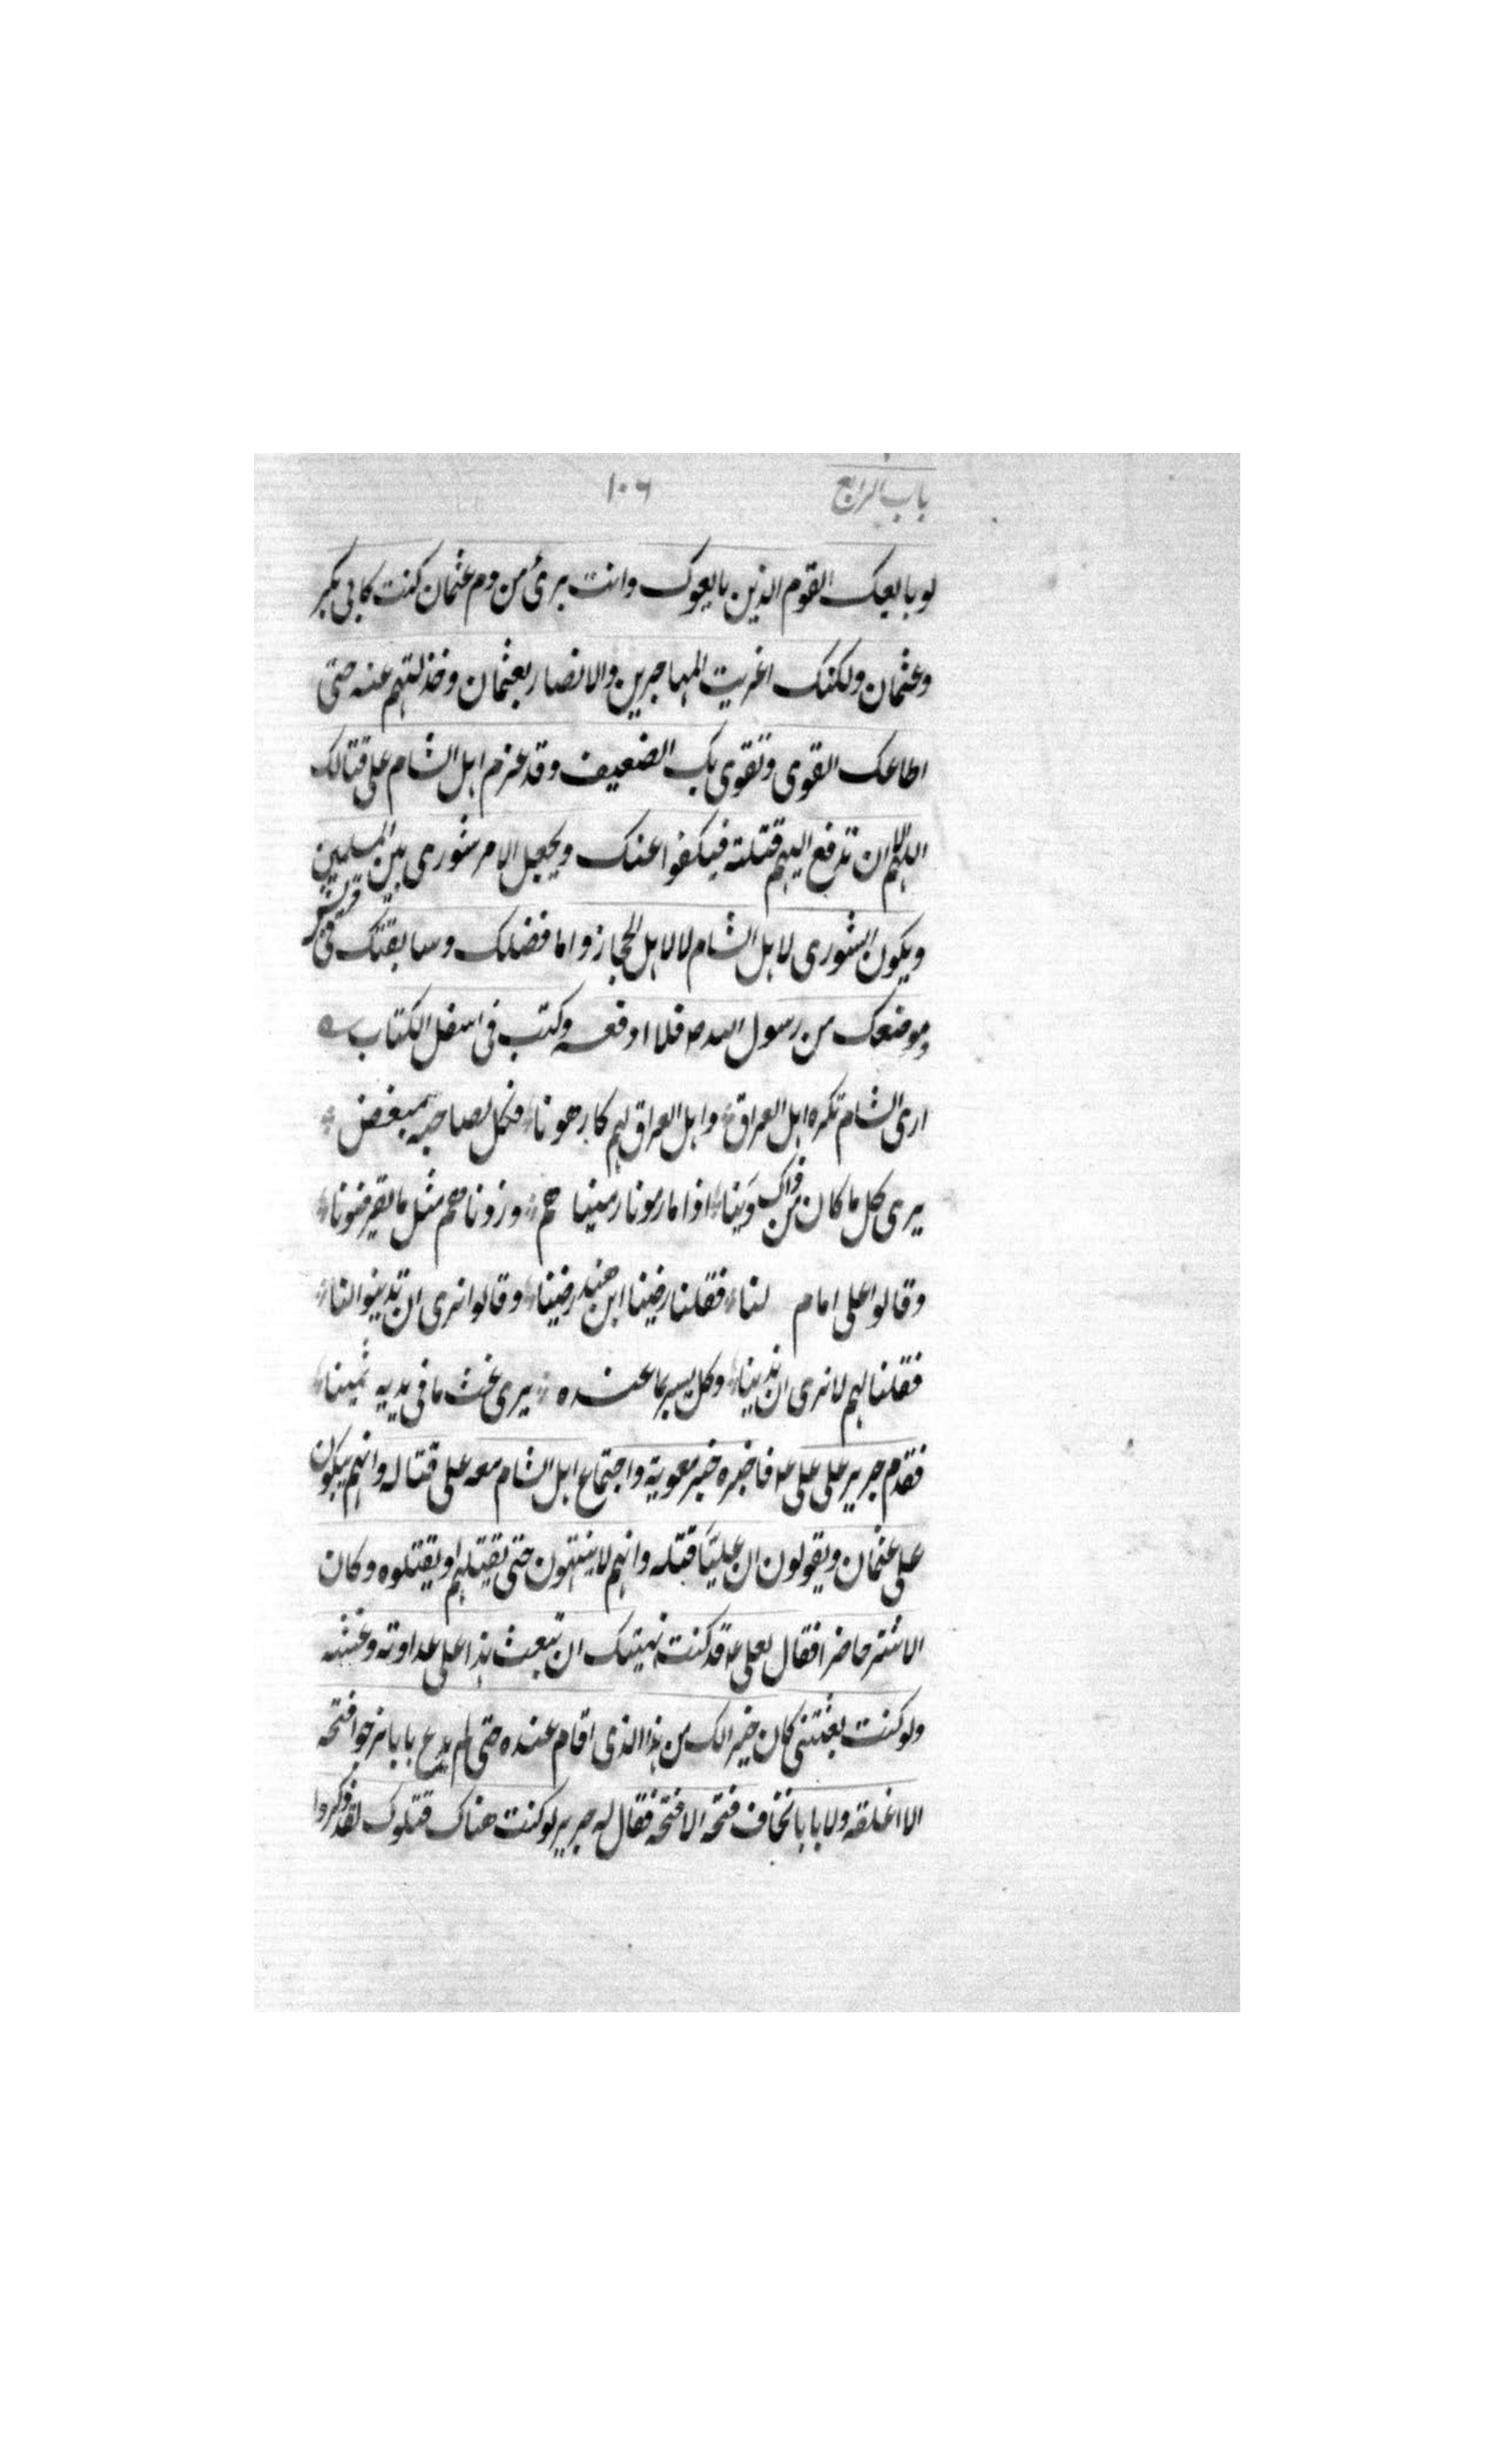 باب الرابع ١٠٦
لو بایعک القوم الذین بایعوک وانت بریٔ من دم عثمان کنت کابی بکر
وعثمان ولکنک اغریت المهاجرین والانصار بعثمان وخذلتهم عنه حتی
اطاعک القوی وتقوی بک الضعیف وقد عزم اهل الشام علی قتالک
اللهم الا ان تدفع الیهم قتلته فیکفوا عنک ویجعل الامر شوری بین المسلمین
ویکون الشوری لاهل الشام لا لاهل الحجاز واما فضلک وسابقتک فی قریش
وموضعک من رسول الله ص فلا ادفعه وکتب فی اسفل الکتاب
اری الشام تکره اهل العراق واهل العراق لهم کارهونا فکل لصاحبه مبغض
یری کل ما کان من ذاک دَینا اذا ما رمونا رمینا هم ودناهم مثل ما یقرضونا
وقالوا علی امام لنا فقلنا رضینا ابن هند رضینا وقالوا نری ان تدینوا لنا
فقلنا لهم لا نری ان ندینا وکل یسر بما عنده یری غث ما فی یدیه ثمینا
فقدم جریر علی علی ع فاخبره خبر معویة واجتماع اهل الشام معه علی قتاله وانهم یبکون
علی عثمان ویقولون ان علیّاً قتله وانهم لا ینتهون حتی یقتلهم او یقتلوه وکان
الاشتر حاضرا فقال لعلی ع قد کنت نهیتک ان تبعث هذا علی عداوته وغشه
ولو کنت بعثتنی کان خیرا لک من هذا الذی اقام عنده حتی لم یدع بابا نرجوا فتحه
الا اغلقه ولا بابا نخاف فتحه الا فتحه فقال له جریر لو کنت هناک قتلوک لقد ذکروا